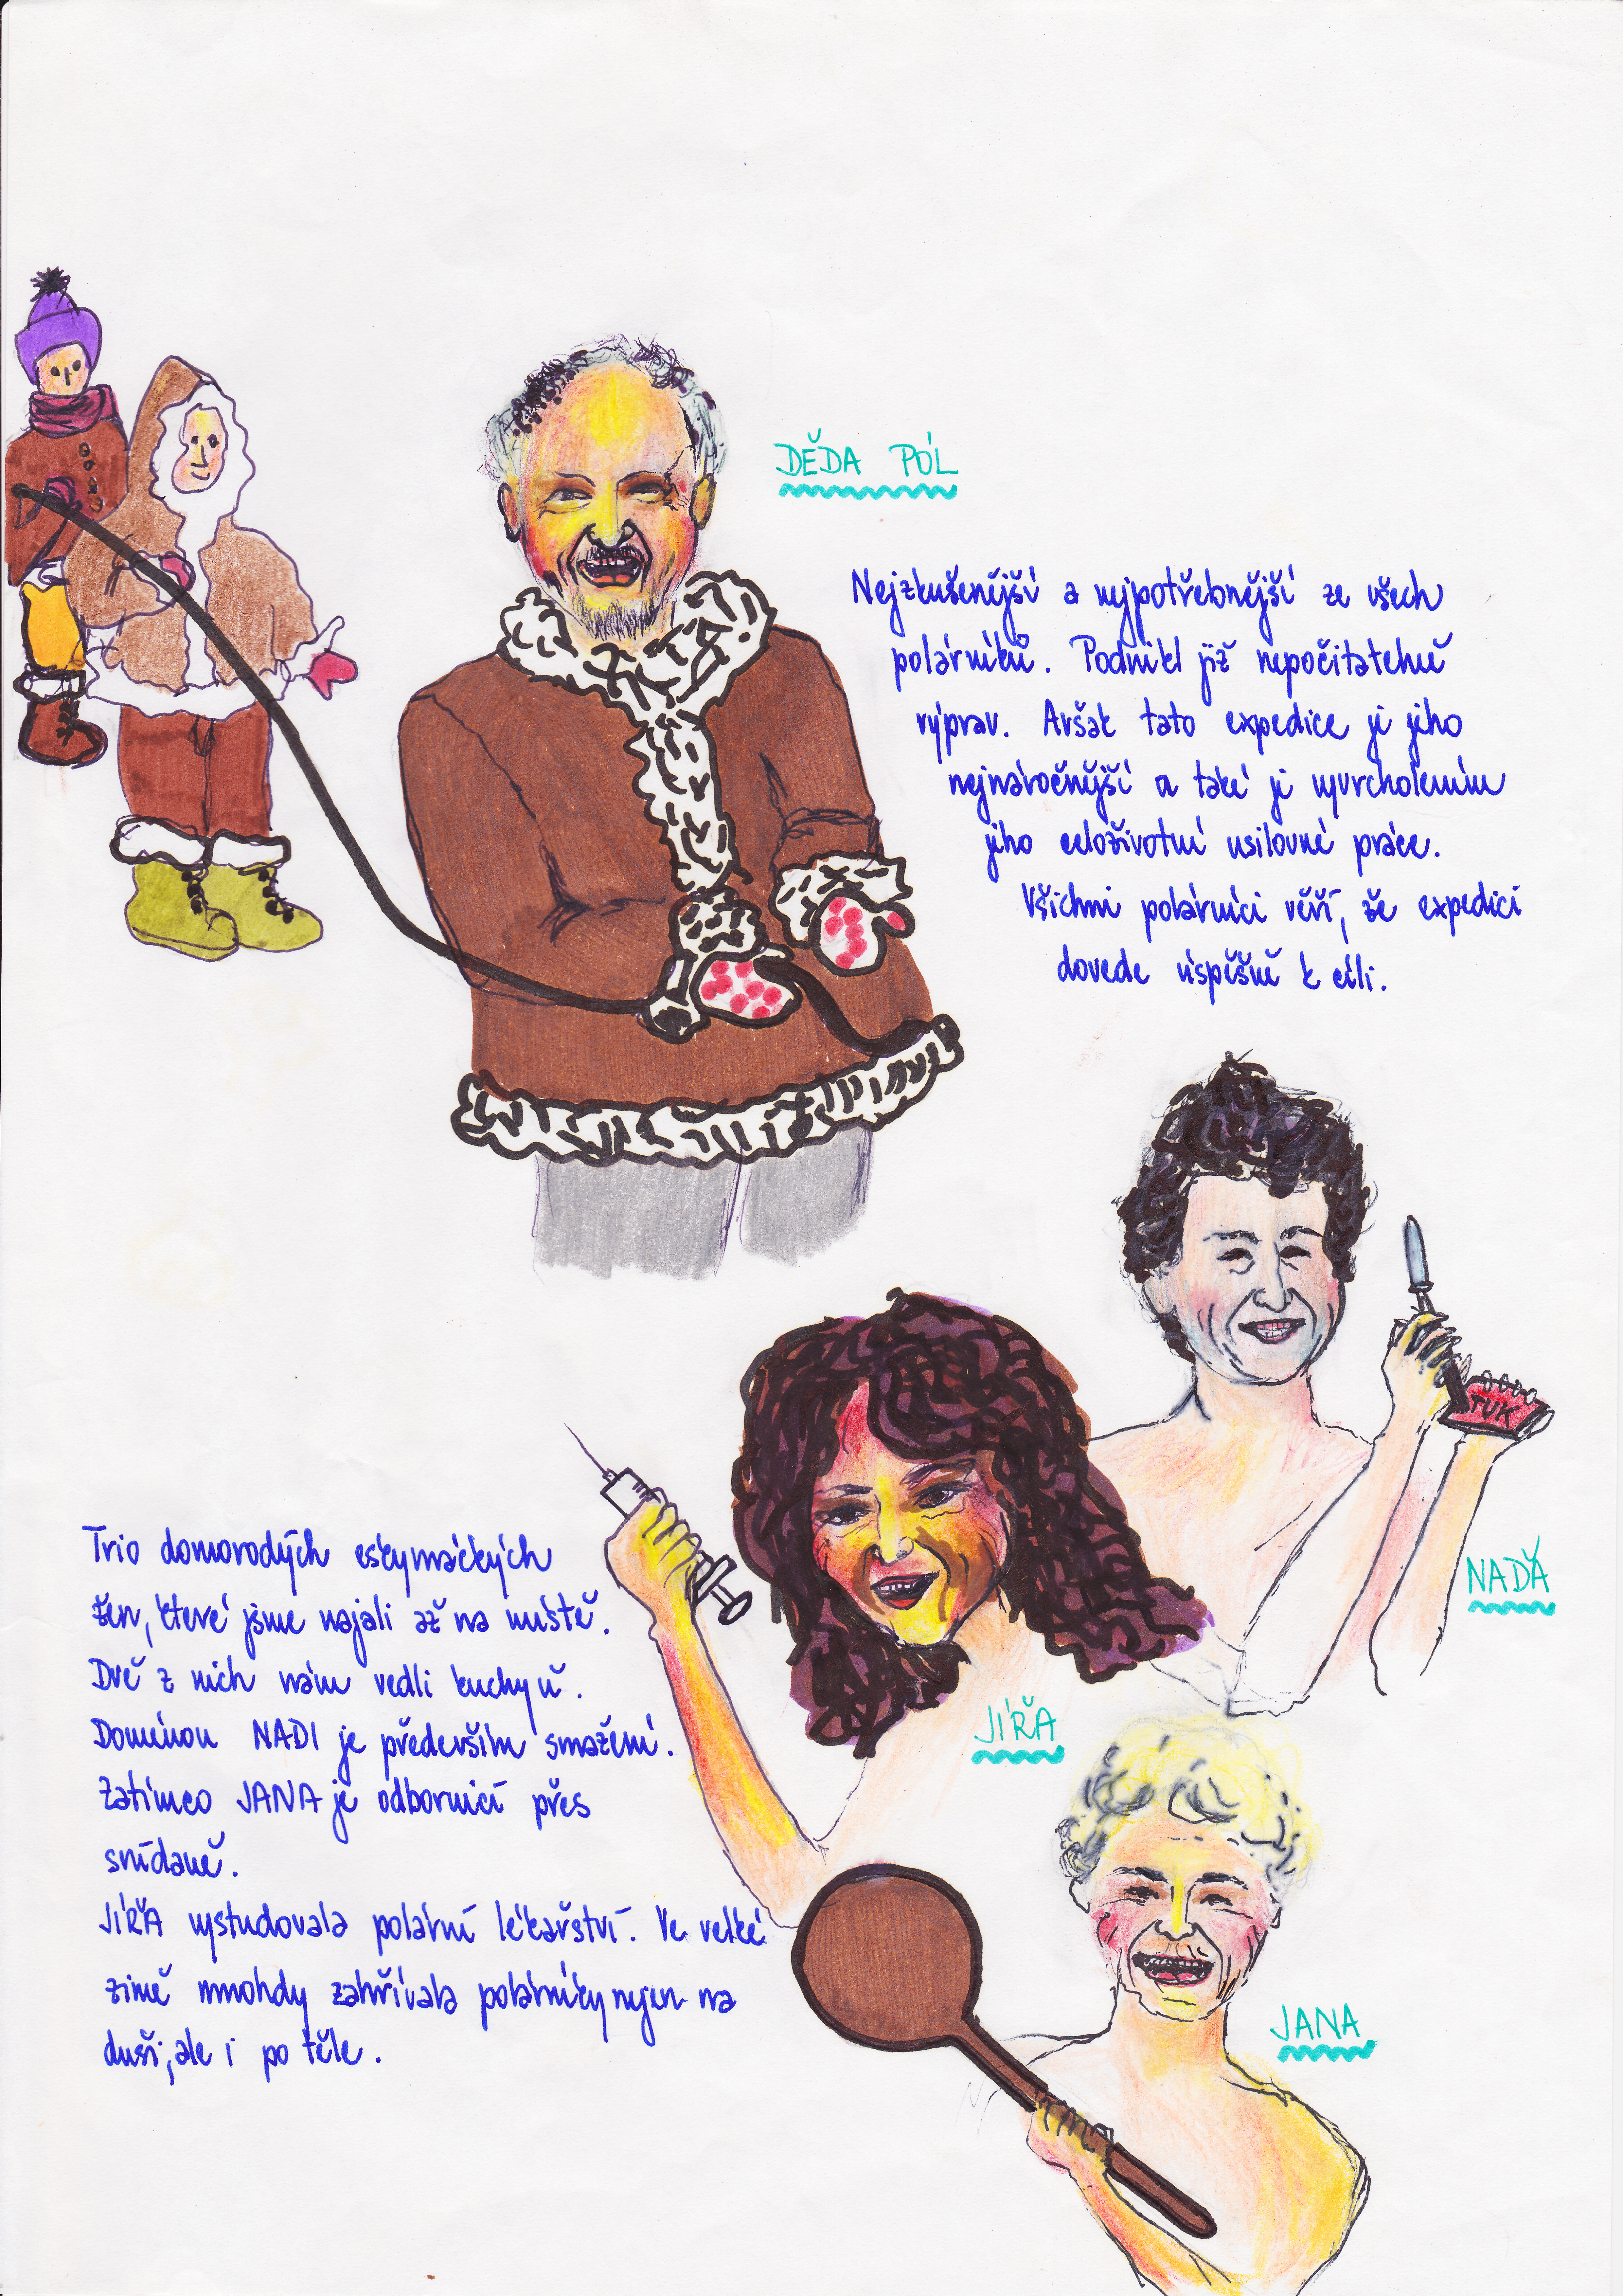 DĚDA PÓL
Nejzkušenější a nejpotřebnější ze všech
polárníků. Podnikl již nepočitatelně
výprav. Avšak tato expedice je jeho
nejnáročnější a také je vyvrcholením
jeho celoživotní usilovné práce.
Všichni polárníci věří, že expedici
dovede úspěšně k cíli.
TUK
NAĎA
Trio domorodých eskymáckých
žen, které jsme najali až na místě.
Dvě z nich nám vedli kuchyň.
Doménou NADI je především smažení.
Zatímco JANA je odbornicí přes
snídaně.
JÍŘA
JÍŘA vystudovala polární lékařství. Ve velké
zimě mnohdy zahřívala polárníky nejen na
duši, ale i po těle.
JANA